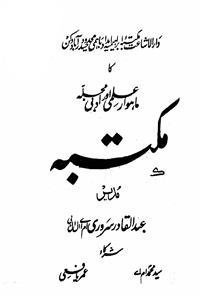 دار الاشاعت مکتبہ ابراہیمیہ امداد باہمی محدود حیدرآباد دکن
کا
ماہوار علمی اور ادبی مجلہ
مکتبہ
مدیر
عبدالقادر سروری
شرکاء
سید محمد ام اے
عمر یافعی